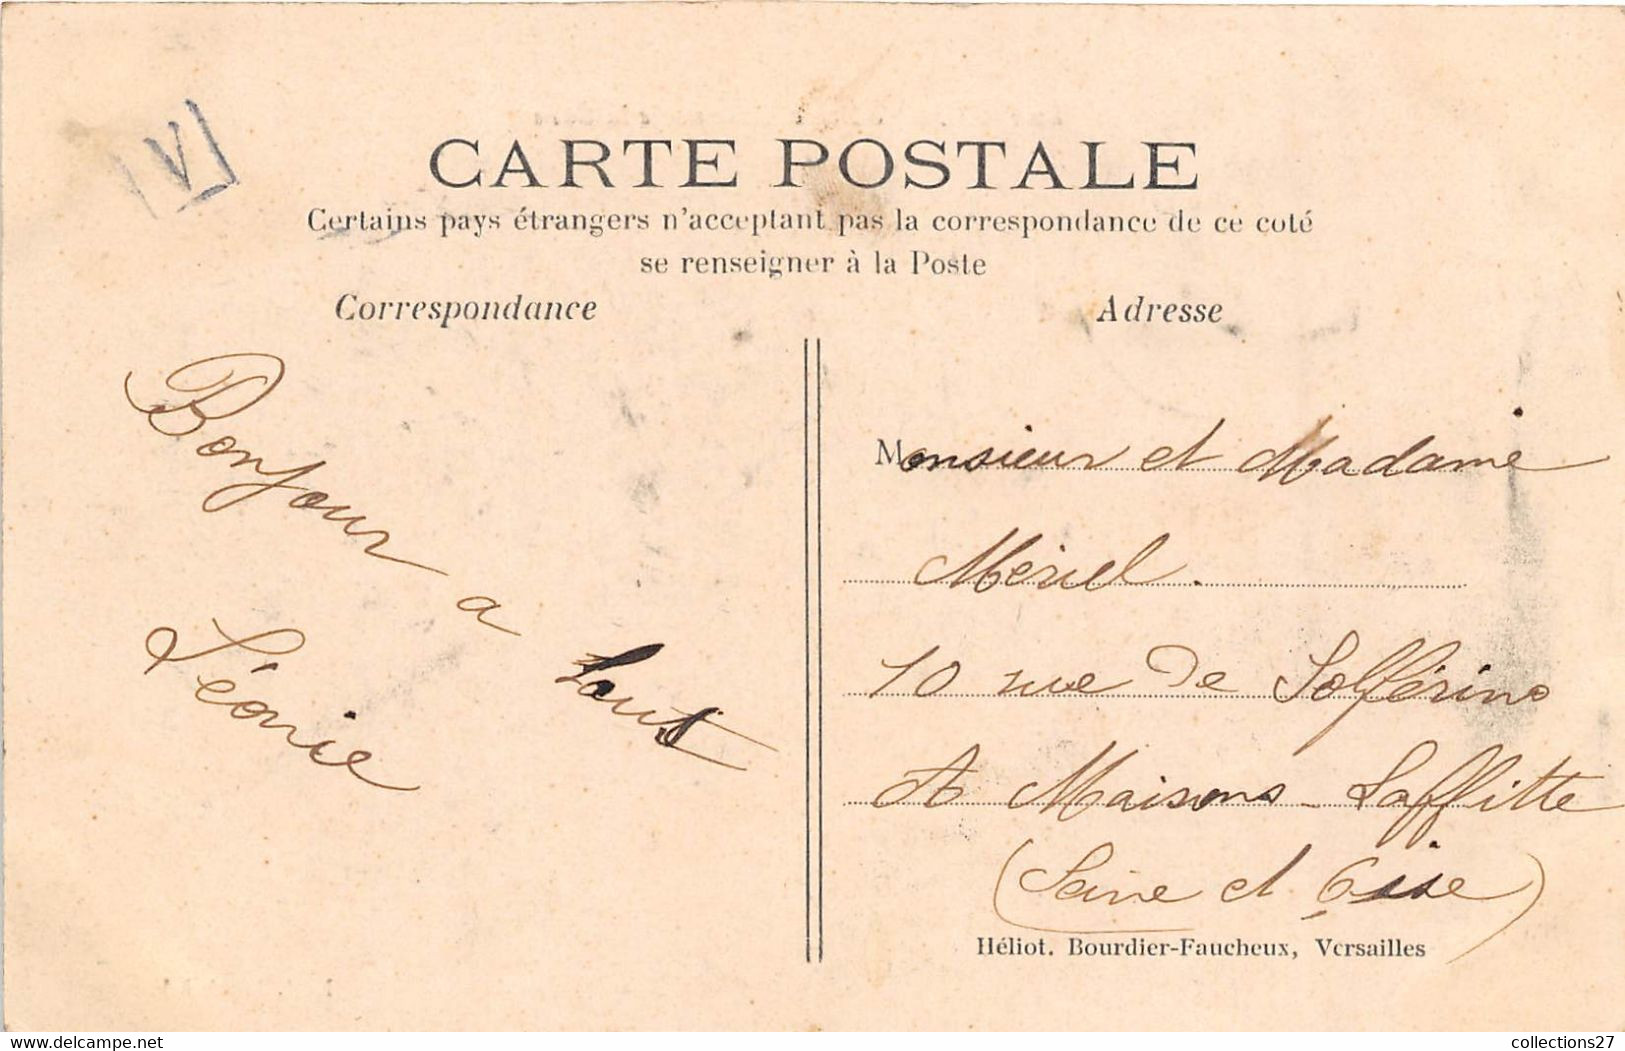 V
CARTE POSTALE
Certains pays étrangers n'acceptant pas la correspondance de ce coté
se renseigner à la Poste
Correspondance
Bonjour a tous
Léonie
Adresse
Monsieur et Madame
Mériel.
10 rue De Solférino
A Maisons-Laffitte
(Seine et Oise)
Héliot. Bourdier-Faucheux, Versailles
collections27